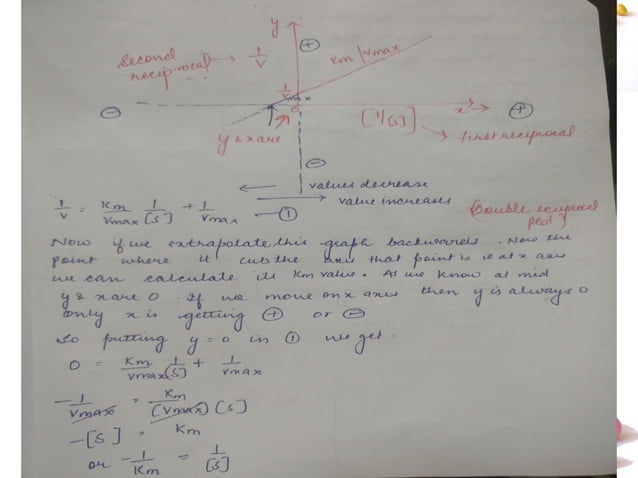 y
⊕
Second
reciprocal → 1/V
Km/Vmax
1/Vmax
⊖
O
x →
⊕
[1/[S]]
→ first reciprocal
y & x are
⊖
← values decrease
→ value increases
(Double reciprocal
plot)
1/V = Km/Vmax 1/[S] + 1/Vmax — ①
Now if we extrapolate this graph backwards. Now the
point where it cuts the axis that point is ie at x axis
we can calculate its Km value. As we know at mid
y & x are 0. If we move on x axis then y is always 0
only x is getting ⊕ or ⊖
So putting y = 0 in ① we get.
0 = Km/Vmax 1/[S] + 1/Vmax
-1/Vmax = Km/(Vmax)(S)
-[S] = Km
or -1/Km = 1/[S]